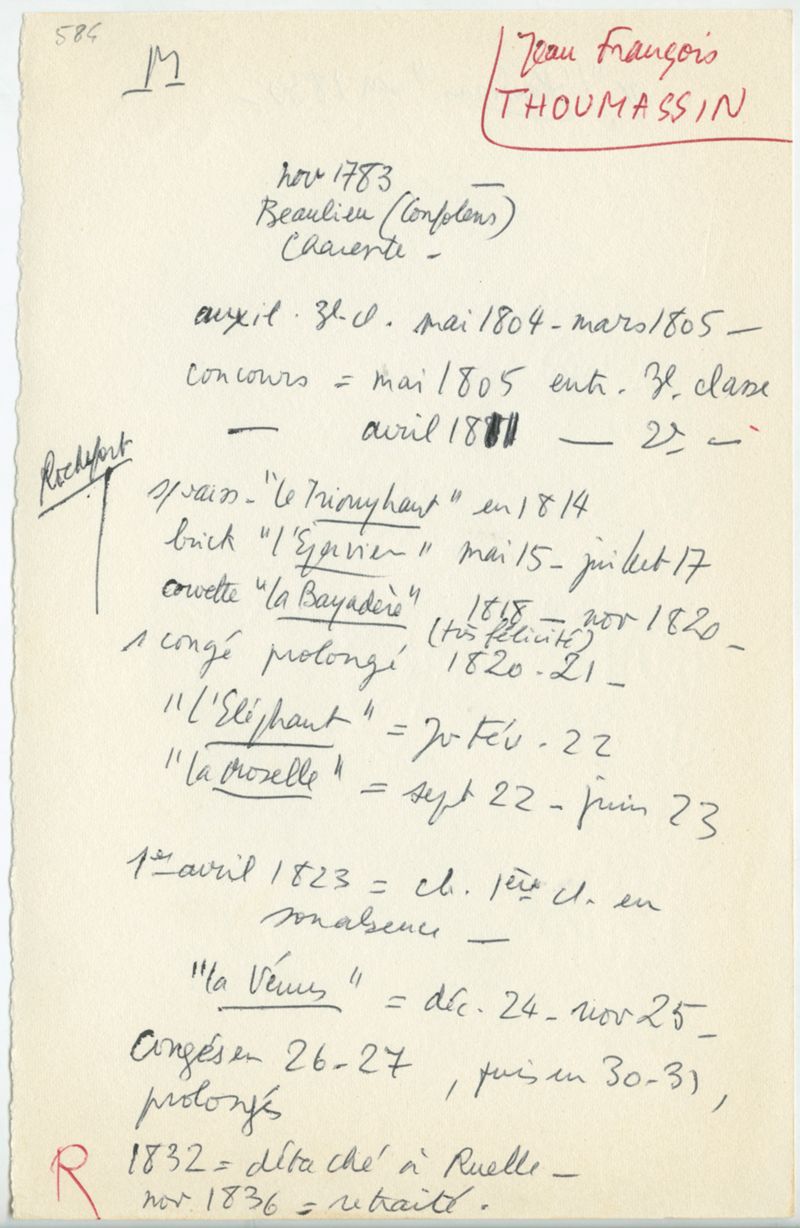 584
M
Jean François
THOUMASSIN
nov 1783
Beaulieu (Confolens)
Charente -
auxil. 3e cl. mai 1804 - mars 1805 -
concours = mai 1805 entr. 3e. classe
— avril 1811 — 2e —
Rochefort
s/vaiss - "le Triomphant" en 1814
brick "l'Epervier" mai 15 - juillet 17
corvette "la Bayadère" 1818 - nov 1820 -
(très félicité)
1 congé prolongé 1820 - 21 -
"l'Eléphant" = Fév. 22
"la Moselle" = sept 22 - juin 23
1er avril 1823 = ch. 1ère cl. en
son absence —
"la Vénus" = déc. 24 - nov 25 -
Congés en 26 - 27, puis en 30 - 31,
prolongés
1832 = détaché à Ruelle -
R
nov 1836 = retraité.